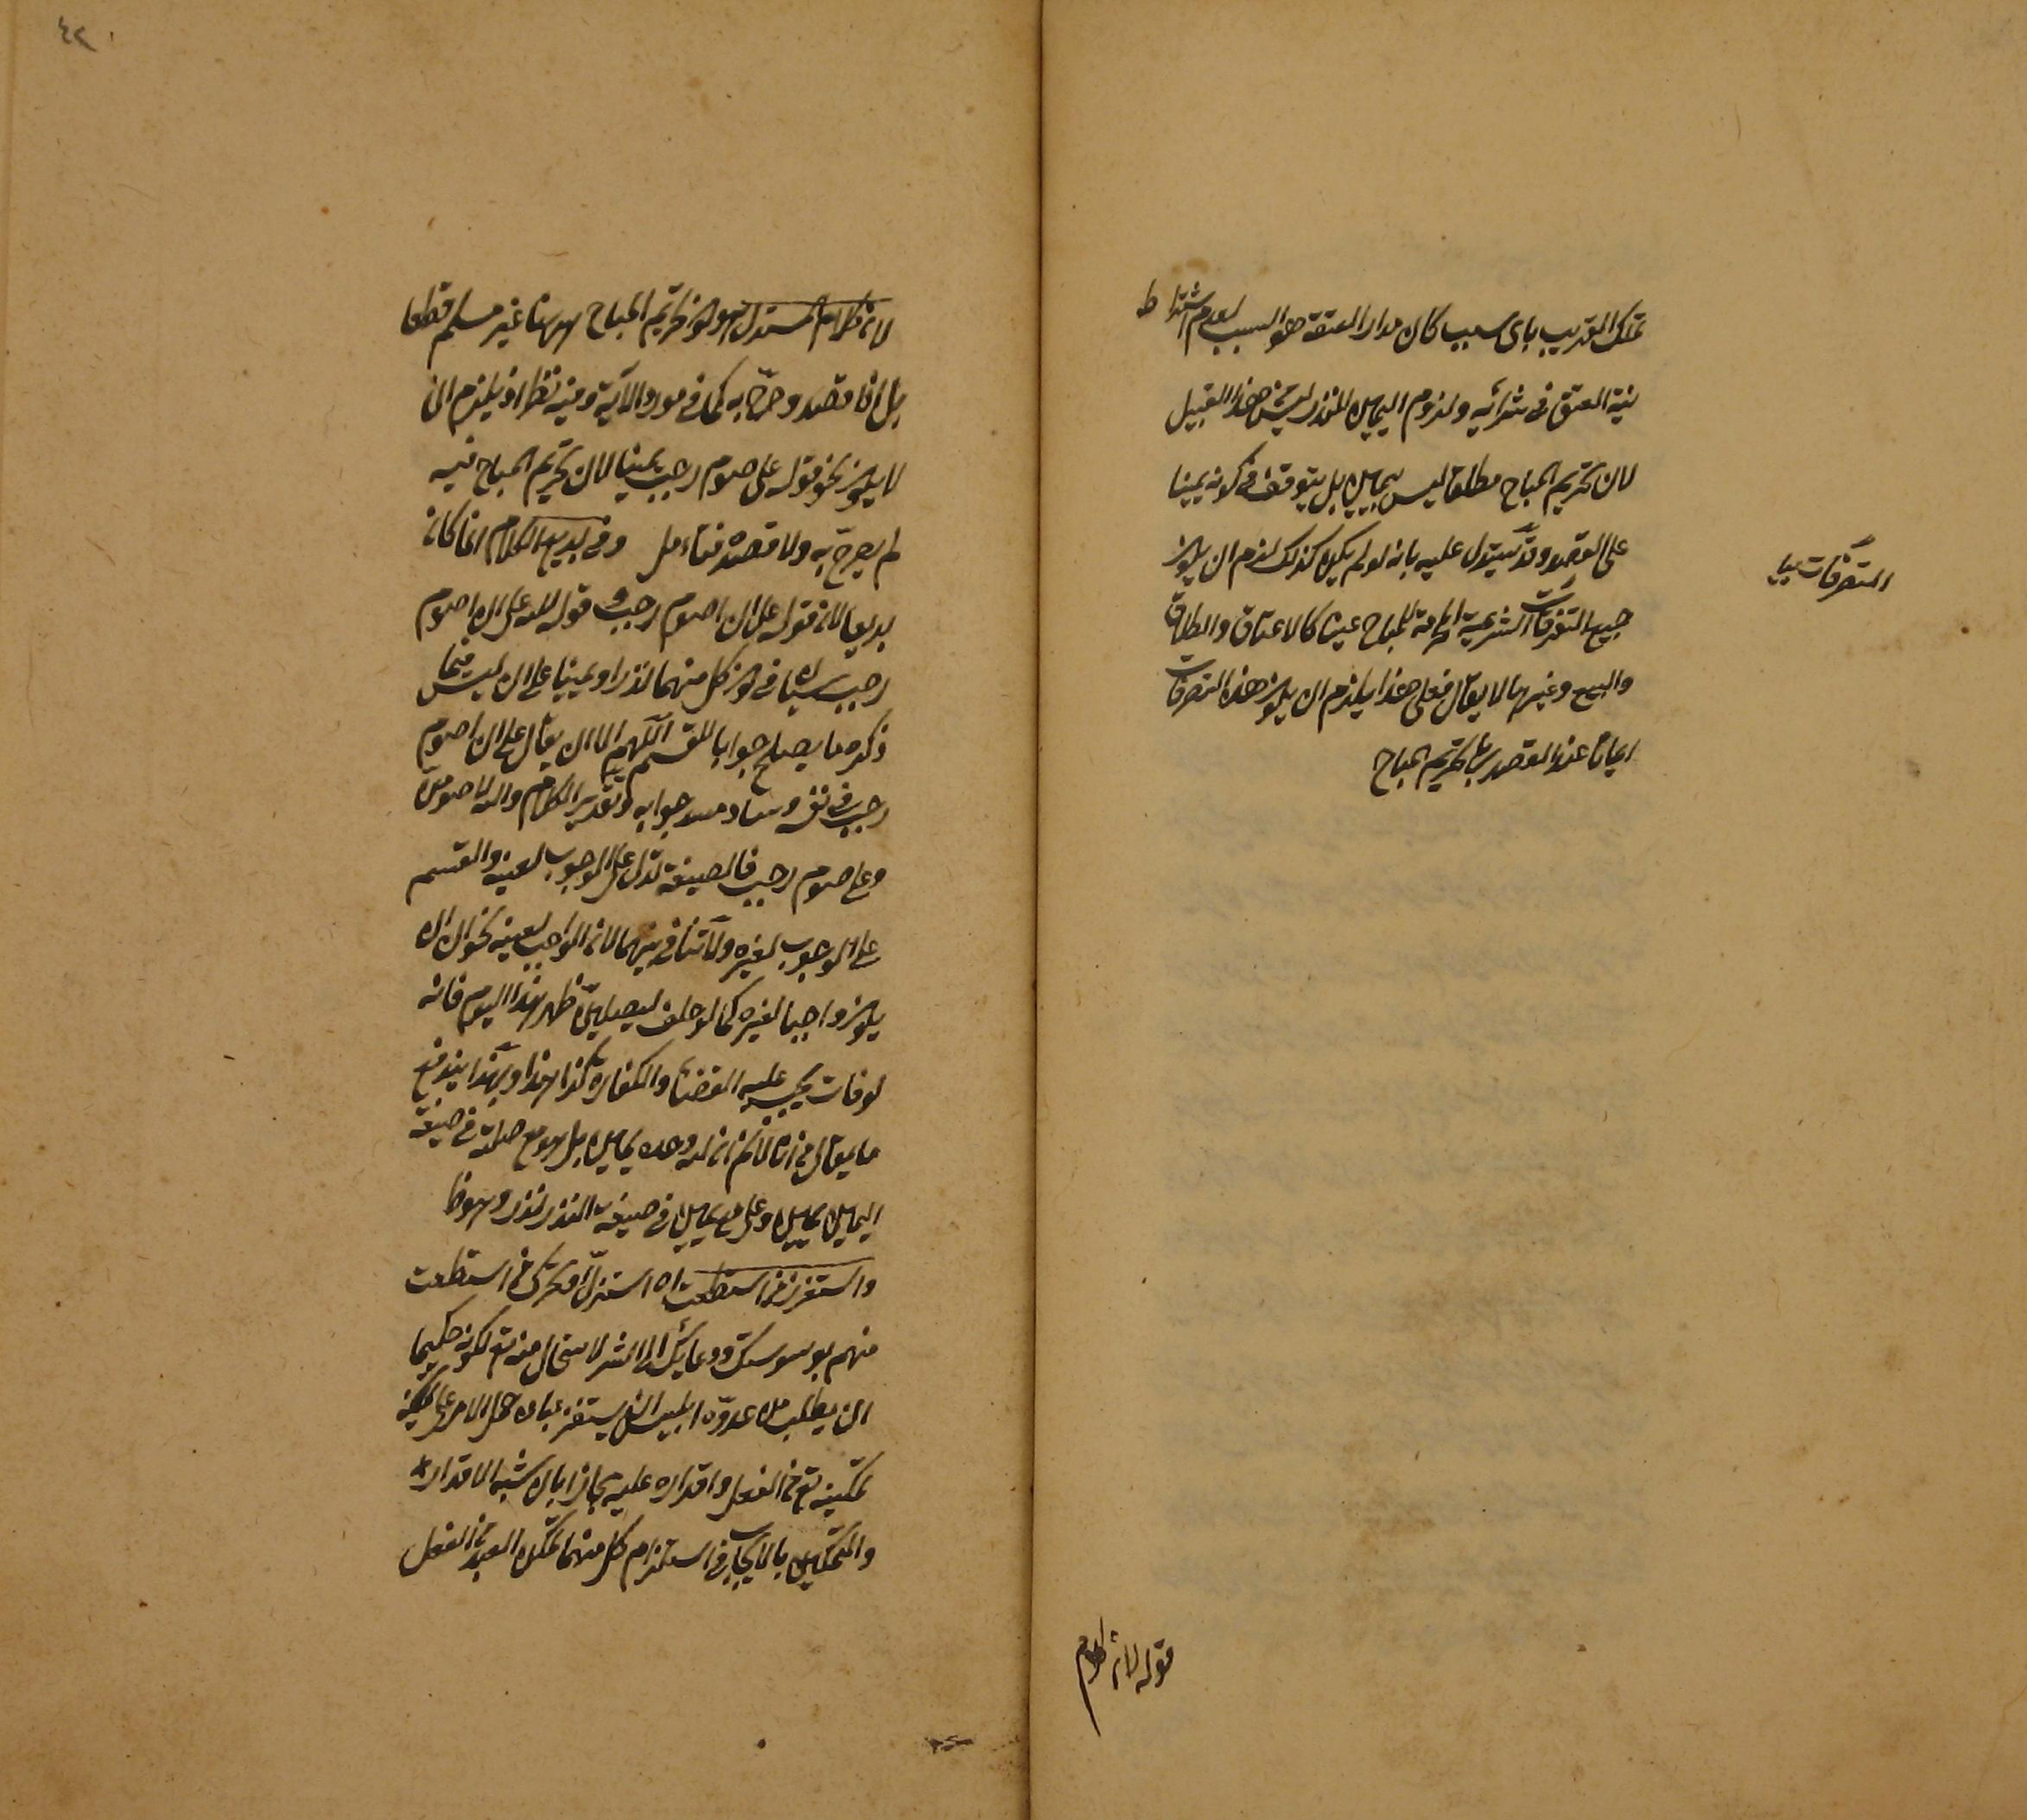 تملك القريب باى سبب كان مدار العتق هو السبب لعدم اشتراط
نية العتق فى شرائه ولزوم اليمين للنذر ليس من هذا القبيل
لان تحريم المباح مطلقا ليس بيمين بل يتوقف فى كونه يمينا
على القصد وقد يستدل عليه بانه لو لم يكن كذلك لزم ان يكون
جميع التصرفات الشرعية للمباح عينا كالاعتاق والطلاق
والبيع وغيرها لا يقال فعلى هذا يلزم ان يكون هذه التصرفات
ايمانا عند القصد بها تحريم المباح
التصرفات
قوله لان كلام
٤٢
لان كلام المستدل هو ان تحريم المباح ههنا غير مسلم قطعا
بل اذا قصد وصرح به كما فى مورد الآية وفيه نظر اذ يلزم ان
لا يكون نحو قوله على صوم رجب يمينا لان تحريم المباح فيه
لم يصرح به ولا قصد فتامل وفى بديع الكلام انما كان
بديعا لان قوله على ان اصوم رجب وقوله لله على ان اصوم
رجب سيان فى كون كل منهما نذرا ويمينا على ان ليس فيما
ذكره ما يصلح جوابا للقسم اللهم الا ان يقال على ان اصوم
رجب فى نفسه ساد مسد جوابه وتقدير الكلام والله لاصومن
وعلى صوم رجب فالصيغة تدل على الوجوب لعينه والقسم
على الوجوب لغيره ولا تنافى بينهما لان الواجب لعينه يجوز ان
يكون واجبا لغيره كما لو حلف ليصلين ظهر هذا اليوم فانه
لو فات يجب عليه القضاء والكفارة كذا هذا وبهذا يندفع
ما يقال من انا لا نم ان لله وحده يمين بل هو مع صلته فى صيغة
اليمين يمين وعلى مع يمين فى صيغة النذر نذر وهو ظ
واستفزز من استطعت اه استنزل او حرك من استطعت
منهم بوسوستك ودعائك الى الشر لاستحال منه تع لكونه حكيما
ان يطلب من عدوه ابليس ان يستفز عباده حمل الامر على
تمكينه تع من الفعل واقداره عليه مجازا بان شبه الاقدار
والتمكين بالايجاب فى استلزام كل منهما تمكن العبد من الفعل